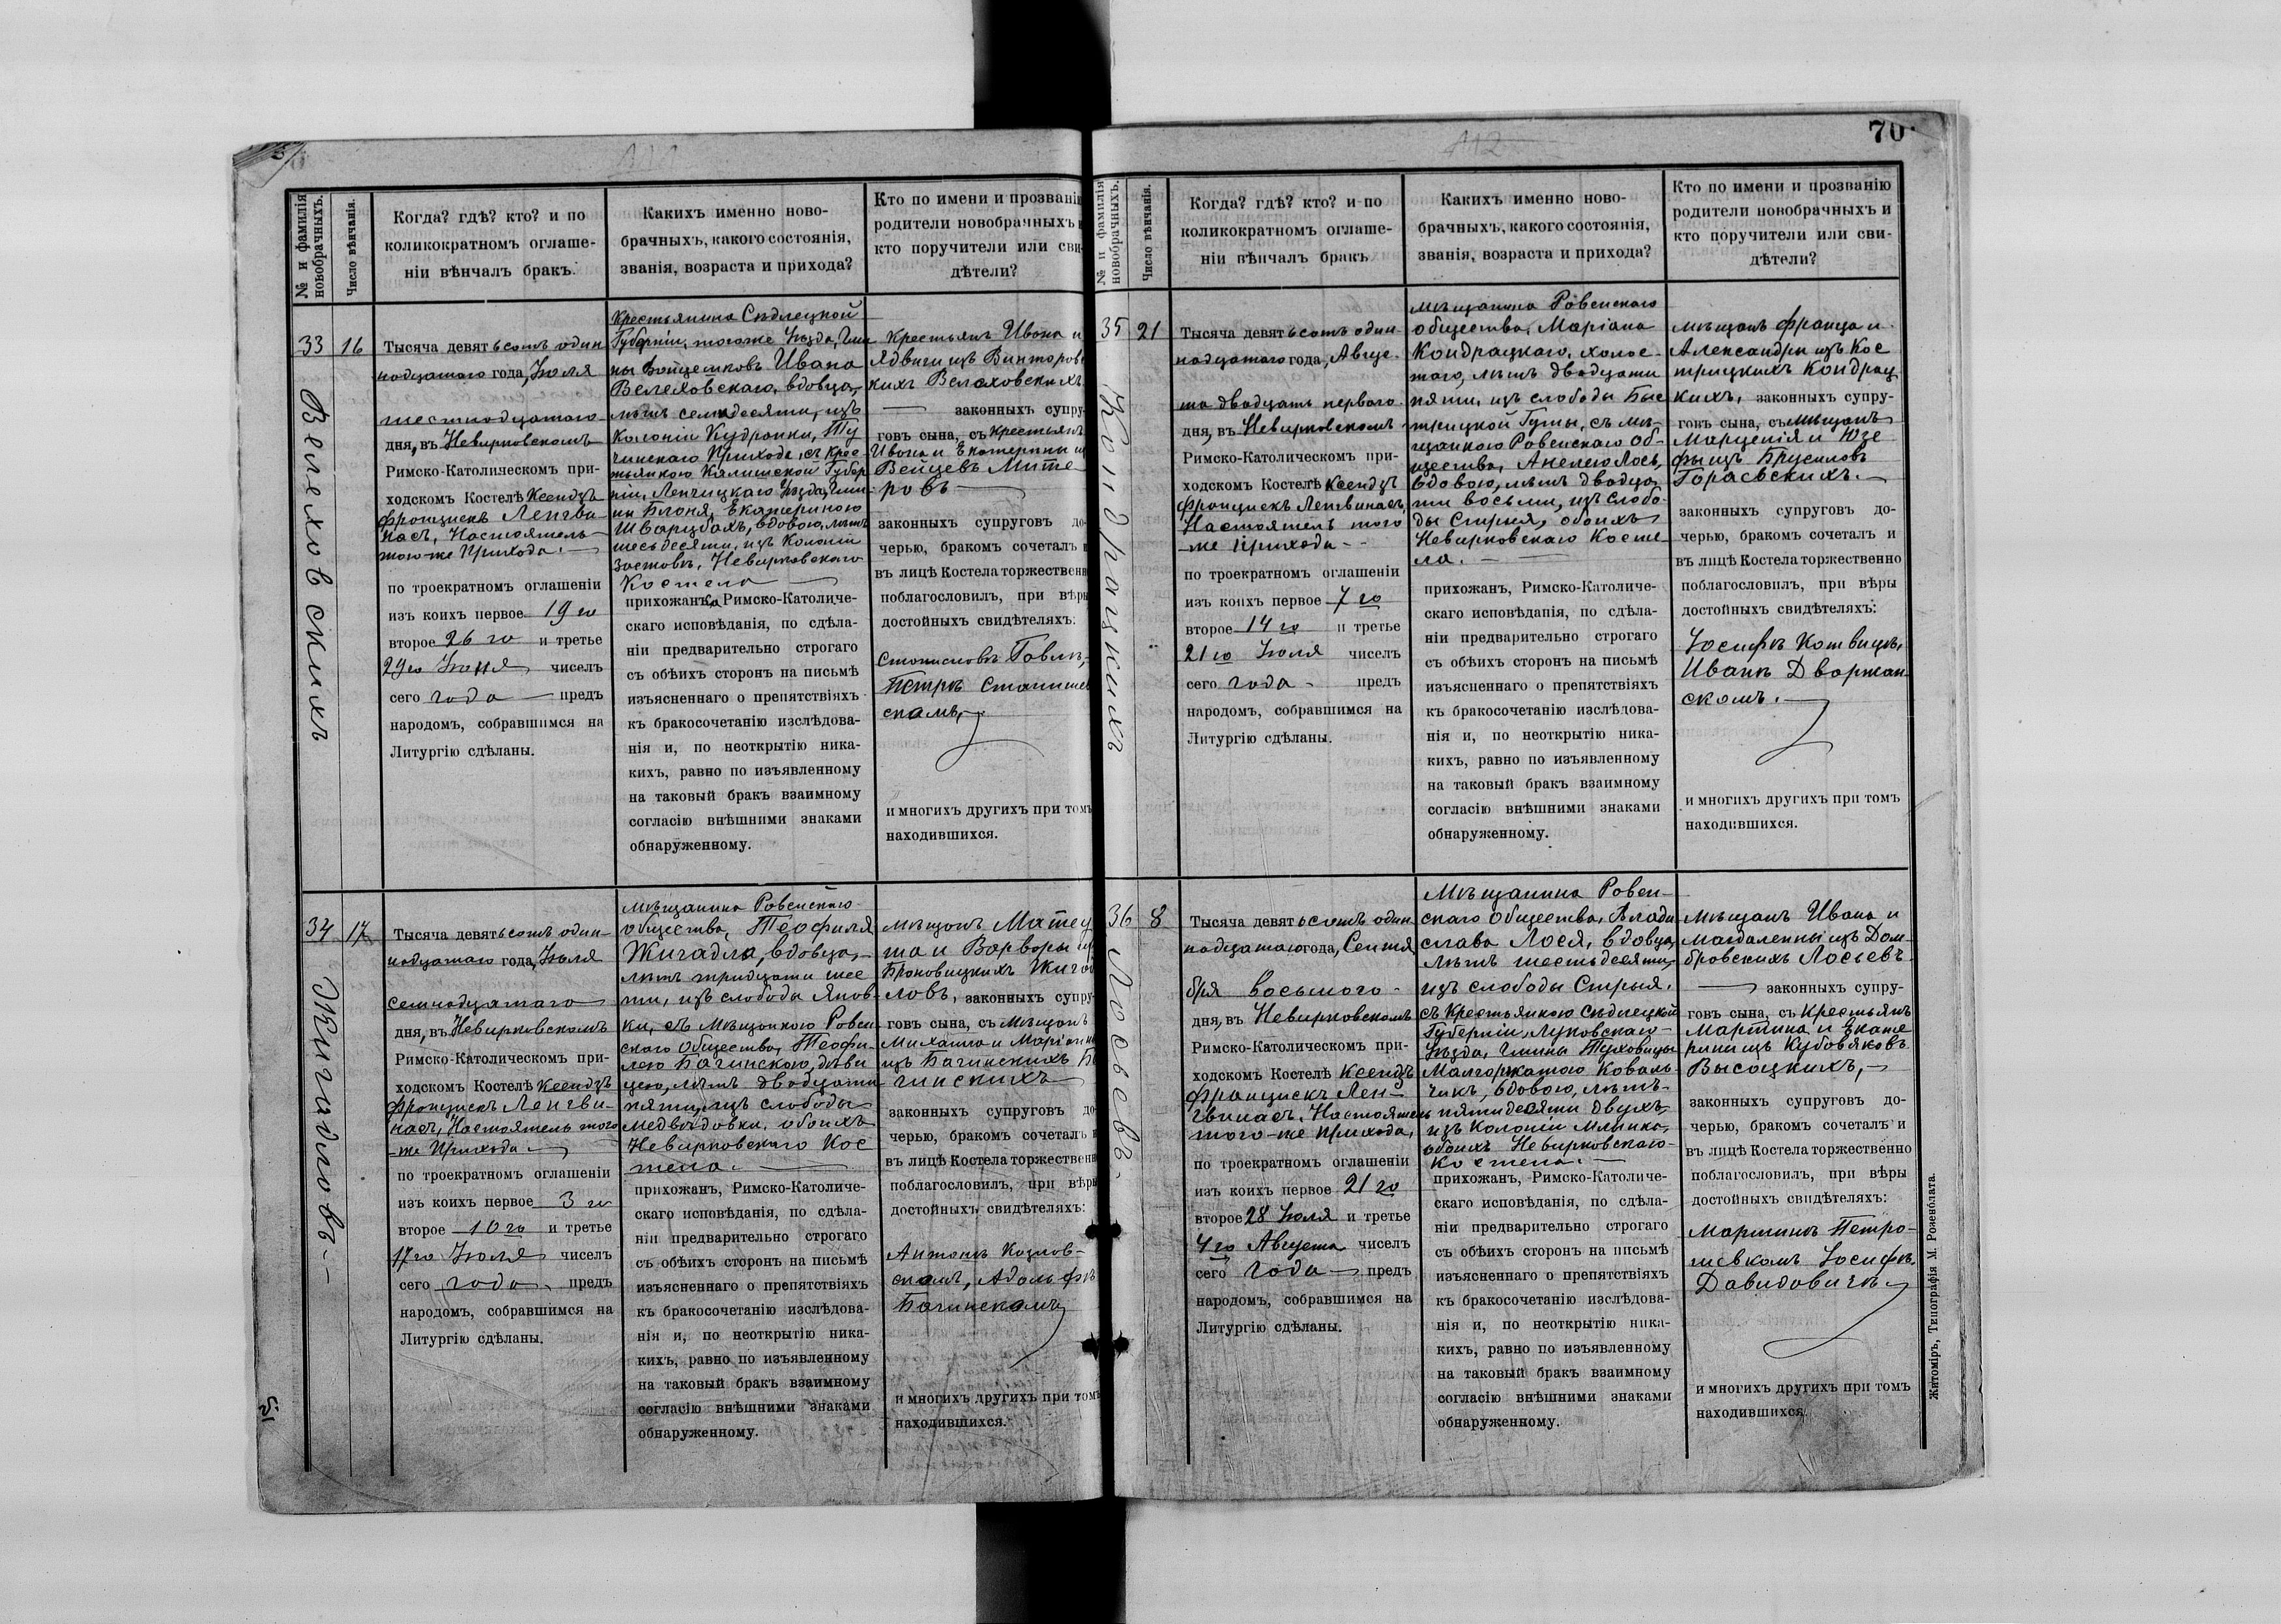 70
112
111
№ и фамилія новобрачныхъ.
Число вѣнчанія.
Когда? гдѣ? кто? и по
коликократномъ оглаше-
ніи вѣнчалъ бракъ.
Какихъ именно ново-
брачныхъ, какого состоянія,
званія, возраста и прихода?
Кто по имени и прозванію
родители новобрачныхъ и
кто поручители или сви-
дѣтели?
33
16
Велеховскихъ
Тысяча девятьсотъ один
надцатаго года, Іюля
шестнадцатаго
дня, въ Невирковскомъ
Римско-Католическомъ при-
ходскомъ Костелѣ Ксендзъ
Францискъ Ленгви
насъ, Настоятель
того-же Прихода.
по троекратномъ оглашеніи
изъ коихъ первое 19 го
второе 26 го и третье
29 го Іюня чиселъ
сего года предъ
народомъ, собравшимся на
Литургію сдѣланы.
Крестьянина Сѣдлецкой
Губерніи, тогоже Уѣзда, Гми
ны Войцешковъ Ивана
Велеховскаго, вдовца,
лѣтъ семидесяти, изъ
Колоніи Кудранки, Ту
чинскаго Прихода, съ крес-
тьянкою Калишской Губер
ніи, Ленчицкаго Уѣзда, Гми-
ны Блоня, Екатериною
Шварцбахъ, вдовою, лѣтъ
шесьдесяти, изъ Колоніи
Заставки, Невирковскаго
Костела
прихожанъ, Римско-Католиче-
скаго исповѣданія, по сдѣла-
ніи предварительно строгаго
съ обѣихъ сторонъ на письмѣ
изъясненнаго о препятствіяхъ
къ бракосочетанію изслѣдова-
нія и, по неоткрытію ника-
кихъ, равно по изъявленному
на таковый бракъ взаимному
согласію внѣшними знаками
обнаруженному.
Крестьянъ Ивана и
Ядвиги изъ Викторов
кихъ Велеховскихъ
законныхъ супру-
говъ сына, съ крестьянъ
Ивана и Екатерины и
Вейцевъ Мите
ровъ
законныхъ супруговъ до
черью, бракомъ сочеталъ и
въ лицѣ Костела торжественн
поблагословилъ, при вѣры
достойныхъ свидѣтеляхъ:
Станиславѣ Гавлѣ,
Петрѣ Станишев
скомъ,
и многихъ другихъ при томъ
находившихся.
34
17
Жигадловъ.
Тысяча девятьсотъ один-
надцатаго года, Іюля
семнадцатаго
дня, въ Невирковскомъ
Римско-Католическомъ при-
ходскомъ Костелѣ Ксендзъ
Францискъ Ленгви-
насъ, Настоятель того
-же Прихода.
по троекратномъ оглашеніи
изъ коихъ первое 3 го
второе 10 го и третье
17 го Іюля чиселъ
сего года предъ
народомъ, собравшимся на
Литургію сдѣланы.
Мѣщанина Ровенскаго
общества, Теофиля
Жигадла, вдовца,
лѣтъ тридцати шес
ти, изъ слободы Янов-
ки, съ Мѣщанкою Ровен
скаго Общества, Теофи-
лею Багинскою, дѣви
цею, лѣтъ двадцати
пяти, изъ слободы
Медвѣдовки, обоихъ
Невирковскаго Кос
тела.
прихожанъ, Римско-Католиче-
скаго исповѣданія, по сдѣла-
ніи предварительно строгаго
съ обѣихъ сторонъ на письмѣ
изъясненнаго о препятствіяхъ
къ бракосочетанію изслѣдова-
нія и, по неоткрытію ника-
кихъ, равно по изъявленному
на таковый бракъ взаимному
согласію внѣшними знаками
обнаруженному.
Мѣщанъ Матеу
ша и Варвары
Броновицкихъ Жигад
ловъ, законныхъ супру-
говъ сына, съ Мѣщанъ
Михаила и Маріанны
изъ Багинскихъ Ба
гинскихъ
законныхъ супруговъ до
черью, бракомъ сочеталъ и
въ лицѣ Костела торжественн
поблагословилъ, при вѣры
достойныхъ свидѣтеляхъ:
Антонѣ Козлов-
скомъ, Адольфѣ
Багинскомъ
и многихъ другихъ при томъ
находившихся.
№ и фамилія новобрачныхъ.
Число вѣнчанія.
Когда? гдѣ? кто? и по
коликократномъ оглаше-
ніи вѣнчалъ бракъ
Какихъ именно ново-
брачныхъ, какого состоянія,
званія, возраста и прихода?
Кто по имени и прозванію
родители новобрачныхъ и
кто поручители или сви-
дѣтели?
35
21
Кондрацкихъ
Тысяча девятьсотъ один-
надцатаго года, Авгус-
та двадцать перваго
дня, въ Невирковскомъ
Римско-Католическомъ при-
ходскомъ Костелѣ Ксендзъ
Францискъ Ленгвинасъ,
Настоятель того
-же Прихода
по троекратномъ оглашеніи
изъ коихъ первое 7 го
второе 14 го и третье
21 го Іюля чиселъ
сего года предъ
народомъ, собравшимся на
Литургію сдѣланы.
Мѣщанина Ровенскаго
общества, Маріана
Кондрацкаго, холос-
таго, лѣтъ двадцати
пяти, изъ слободы Быс
трицкой Гуты, съ Мѣ-
щанкою Ровенскаго Об-
щества, Анелею Лось,
вдовою, лѣтъ двадца
ти восьми, изъ слобо-
ды Стрыя, обоихъ
Невирковскаго Косте
ла.
прихожанъ, Римско-Католиче-
скаго исповѣданія, по сдѣла-
ніи предварительно строгаго
съ обѣихъ сторонъ на письмѣ
изъясненнаго о препятствіяхъ
къ бракосочетанію изслѣдова-
нія и, по неоткрытію ника-
кихъ, равно по изъявленному
на таковый бракъ взаимному
согласію внѣшними знаками
обнаруженному.
Мѣщанъ Франца и
Александры изъ Кос
трицкихъ Кондрац
кихъ, законныхъ супру-
говъ сына, съ Мѣщанъ
Марцелія и Юзе
фы изъ Брусиловъ
Гораевскихъ.
законныхъ супруговъ до-
черью, бракомъ сочеталъ и
въ лицѣ Костела торжественно
поблагословилъ, при вѣры
достойныхъ свидѣтеляхъ:
Іосифѣ Котвицкѣ,
Иванѣ Дворжан
скомъ.
и многихъ другихъ при томъ
находившихся.
36
8
Лосьевъ.
Тысяча девятьсотъ один
надцатаго года, Сентя
бря восьмого
дня, въ Невирковскомъ
Римско-Католическомъ при-
ходскомъ Костелѣ Ксендзъ
Францискъ Лен-
гвинасъ, Настоятель
того-же Прихода,
по троекратномъ оглашеніи
изъ коихъ первое 21 го
второе 28 Іюля и третье
4 го Августа чиселъ
сего года предъ
народомъ, собравшимся на
Литургію сдѣланы.
Мѣщанина Ровен-
скаго Общества, Влади
слава Лося, вдовца,
лѣтъ шестьдесяти,
изъ слободы Стрыя,
съ Крестьянкою Сѣдлецкой
Губерніи, Луковскаго
Уѣзда, Гмины Туховицы
Малгоржатою Коваль
чикъ, вдовою, лѣтъ
пятидесяти двухъ,
изъ Колоніи Млынка,
обоихъ Невирковскаго
Костела.
прихожанъ, Римско-Католиче-
скаго исповѣданія, по сдѣла-
ніи предварительно строгаго
съ обѣихъ сторонъ на письмѣ
изъясненнаго о препятствіяхъ
къ бракосочетанію изслѣдова-
нія и, по неоткрытію ника-
кихъ, равно по изъявленному
на таковый бракъ взаимному
согласію внѣшними знаками
обнаруженному.
Мѣщанъ Ивана и
Магдалены изъ Дом-
бровскихъ Лосьевъ
законныхъ супру-
говъ сына, съ Крестьянъ
Мартина и Екате
рины изъ Кубовяковъ
Высоцкихъ,
законныхъ супруговъ до-
черью, бракомъ сочеталъ и
въ лицѣ Костела торжественно
поблагословилъ, при вѣры
достойныхъ свидѣтеляхъ:
Мартинѣ Петро-
шевкомъ Іосифѣ
Давидовичѣ
и многихъ другихъ при томъ
находившихся.
Житоміръ, Типографія М. Роненблата.